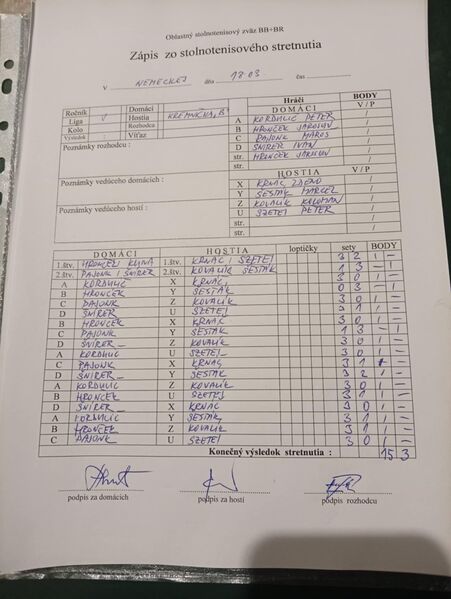 Oblastný stolnotenisový zväz BB+BR
Zápis zo stolnotenisového stretnutia
V NEMECKEJ dňa 18.03 čas
Ročník Domáci Hráči BODY
Liga V Hostia KREMNIČKA, B" DOMÁCI V / P
Kolo Rozhodca A KORDULIČ PETER /
Výsledok : Víťaz B HRONČEK JAROSLAV /
Poznámky rozhodcu : C PAJONK MAROŠ /
D ŠNÍRER IVAN /
str. HRONČEK /
str. /
Poznámky vedúceho domácich : HOSTIA V / P
X KRNÁČ /
Y ŠESTÁK MARCEL /
Poznámky vedúceho hostí : Z KOVALÍK KOLOMAN /
U SZETEI PETER /
str. /
str. /
DOMÁCI HOSTIA loptičky sety BODY
1.štv. 1.štv. KRNÁČ / SZETEI 3 2 1 –
2.štv. PAJONK / ŠNÍRER 2.štv. KOVALÍK ŠESTÁK 1 3 – 1
A KORDULIČ X KRNÁČ 3 0 1 –
B HRONČEK Y ŠESTÁK 0 3 – 1
C PAJONK Z KOVALÍK 3 0 1 –
D ŠNÍRER U SZETEI 3 1 1 –
B HRONČEK X KRNÁČ 3 0 1 –
C PAJONK Y ŠESTÁK 1 3 – 1
D ŠNÍRER Z KOVALÍK 3 0 1 –
A KORDULIČ U SZETEI 3 0 1 –
C PAJONK X KRNÁČ 3 1 1 –
D ŠNÍRER Y ŠESTÁK 3 2 1 –
A KORDULIČ Z KOVALÍK 3 0 1 –
B HRONČEK U SZETEJ 3 1 1 –
D ŠNÍRER X KRNÁČ 3 0 1 –
A KORDULIČ Y ŠESTÁK 3 0 1 –
B HRONČEK Z KOVALÍK 3 1 1 –
C PAJONK U SZETEI 3 0 1 –
Konečný výsledok stretnutia : 15 3
podpis za domácich podpis za hostí podpis rozhodcu